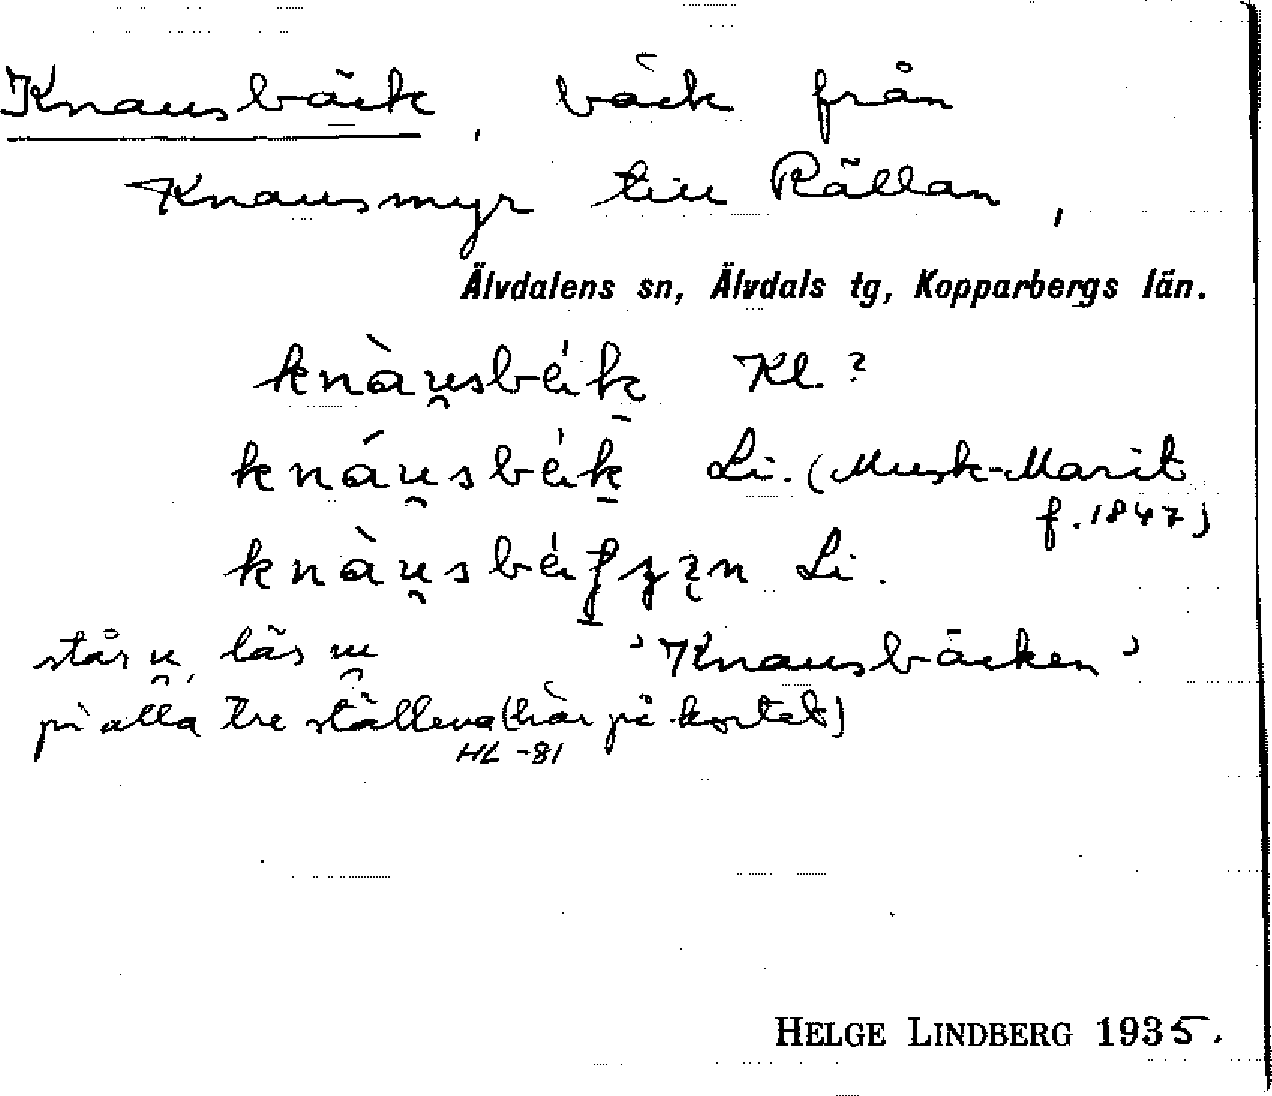 Knausbäck, bäck från
Knausmyr till Rällan,
Älvdalens sn, Älvdals tg, Kopparbergs län.
knàu̯sbék Kl?
knáu̯sbék Li. (Musk-Marit
f. 1847)
Li.
står u̯, läs
'Knausbäcken'
på alla tre ställena (här på kortet)
HL -81
HELGE LINDBERG 1935.